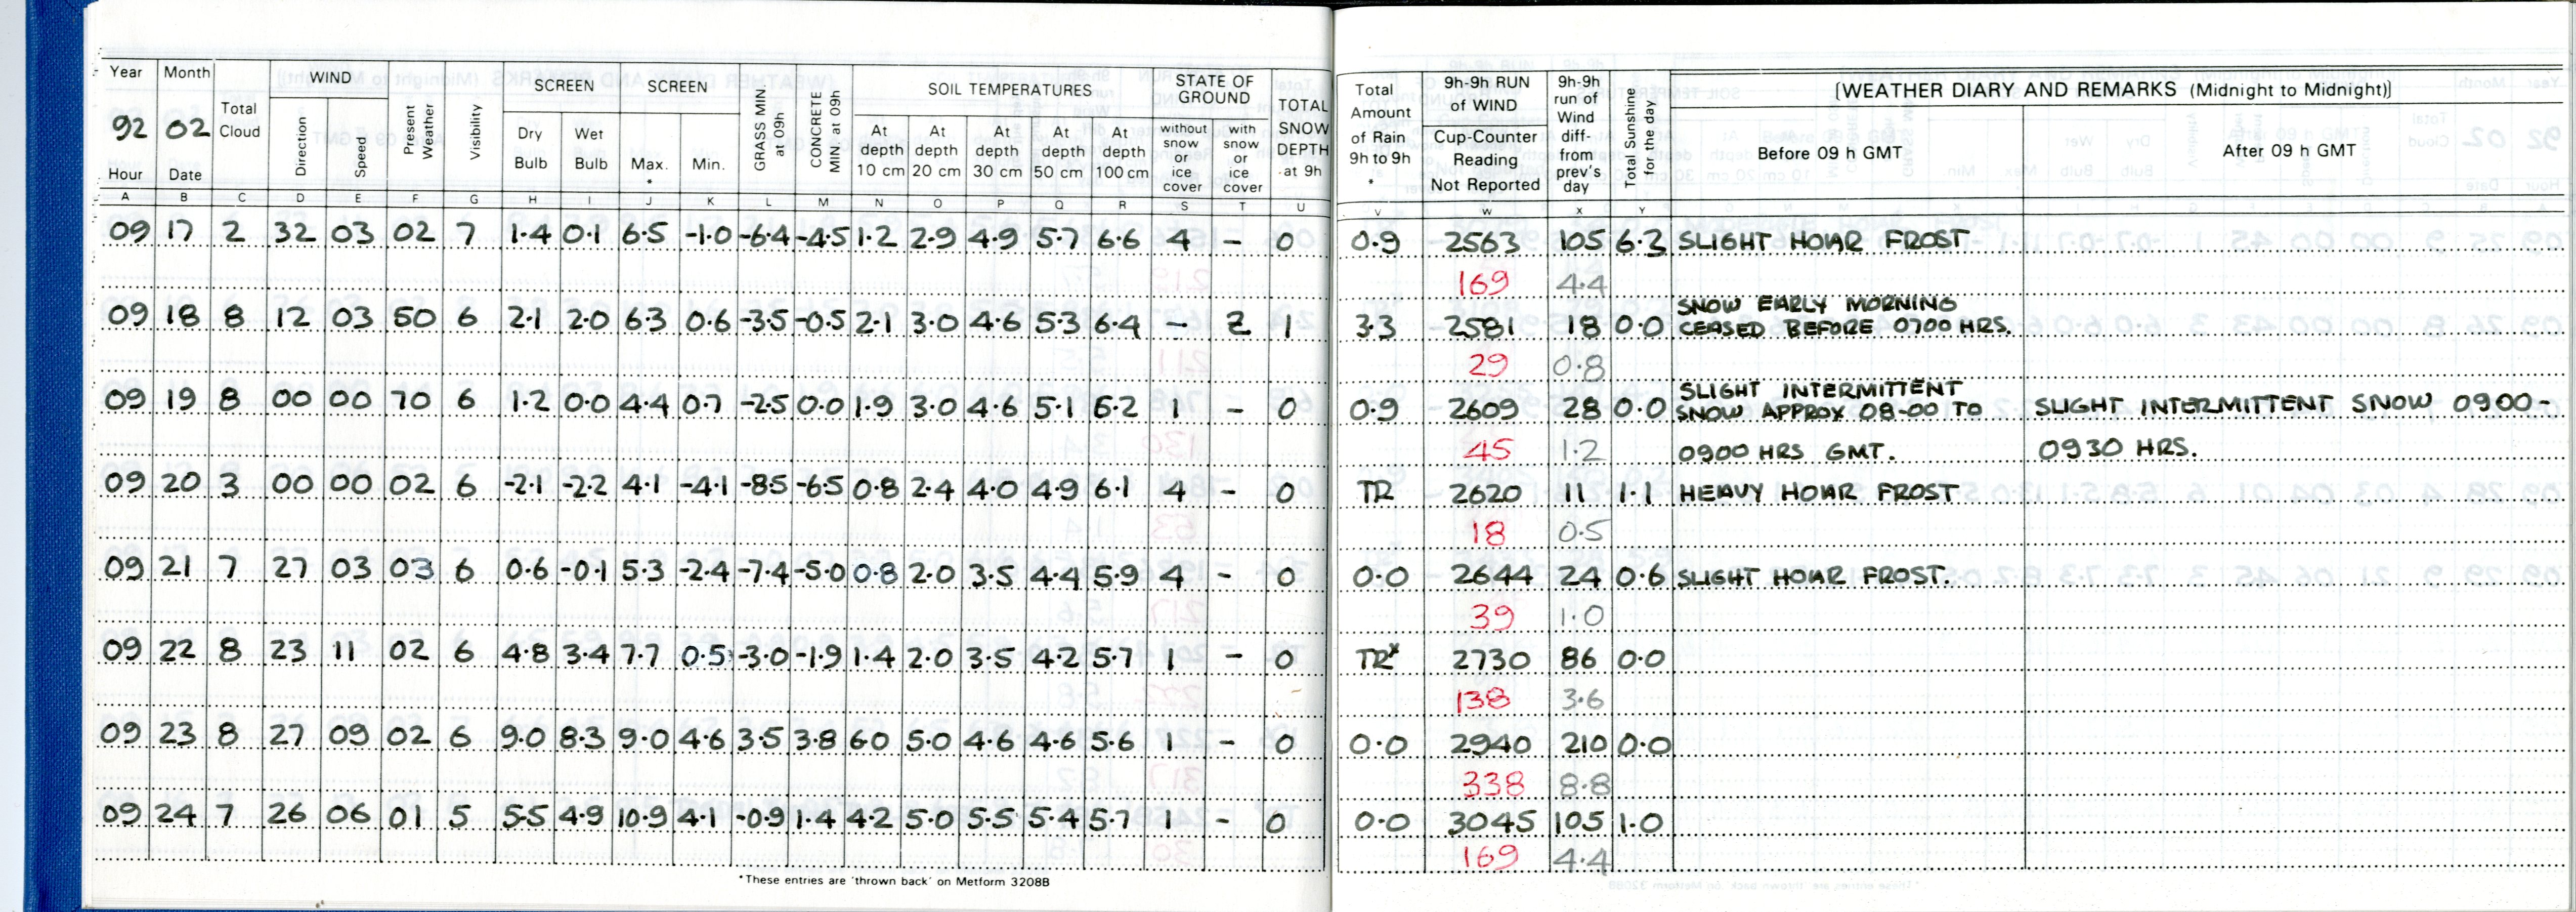 Year Month Total Cloud WIND Present Weather Visibility SCREEN SCREEN GRASS MIN. at 09h CONCRETE MIN at 09h SOIL TEMPERATURES STATE OF GROUND TOTAL SNOW DEPTH at 9h Total Amount of Rain 9h to 9h * 9h-9h RUN of WIND 9h-9h run of Wind diff- from prev's day Total Sunshine for the day [WEATHER DIARY AND REMARKS (Midnight to Midnight)]
92 02 Direction Speed Dry Bulb Wet Bulb Max. * Min. At depth 10 cm At depth 20 cm At depth 30 cm At depth 50 cm At depth 100 cm without snow or ice cover with snow or ice cover Cup-Counter Reading Not Reported Before 09 h GMT After 09 h GMT
Hour Date
A B C D E F G H I J K L M N O P Q R S T U V W X Y
09 17 2 32 03 02 7 1.4 0.1 6.5 -1.0 -6.4 -4.5 1.2 2.9 4.9 5.7 6.6 4 - 0 0.9 2563 105 6.3 SLIGHT HOAR FROST
169 4.4
SNOW EARLY MORNING
09 18 8 12 03 50 6 2.1 2.0 6.3 0.6 -3.5 -0.5 2.1 3.0 4.6 5.3 6.4 - 2 1 3.3 2581 18 0.0 CEASED BEFORE 0700 HRS.
29 0.8
SLIGHT INTERMITTENT
09 19 8 00 00 70 6 1.2 0.0 4.4 0.7 -2.5 0.0 1.9 3.0 4.6 5.1 6.2 1 - 0 0.9 2609 28 0.0 SNOW APPROX 08-00 TO SLIGHT INTERMITTENT SNOW 0900-
45 1.2 0900 HRS GMT. 0930 HRS.
09 20 3 00 00 02 6 -2.1 -2.2 4.1 -4.1 -8.5 -6.5 0.8 2.4 4.0 4.9 6.1 4 - 0 TR 2620 11 1.1 HEAVY HOAR FROST
18 0.5
09 21 7 27 03 03 6 0.6 -0.1 5.3 -2.4 -7.4 -5.0 0.8 2.0 3.5 4.4 5.9 4 - 0 0.0 2644 24 0.6 SLIGHT HOAR FROST.
39 1.0
09 22 8 23 11 02 6 4.8 3.4 7.7 0.5 -3.0 -1.9 1.4 2.0 3.5 4.2 5.7 1 - 0 TR* 2730 86 0.0
138 3.6
09 23 8 27 09 02 6 9.0 8.3 9.0 4.6 3.5 3.8 6.0 5.0 4.6 4.6 5.6 1 - 0 0.0 2940 210 0.0
338 8.8
09 24 7 26 06 01 5 5.5 4.9 10.9 4.1 -0.9 1.4 4.2 5.0 5.5 5.4 5.7 1 - 0 0.0 3045 105 1.0
169 4.4
*These entries are 'thrown back' on Metform 3208B